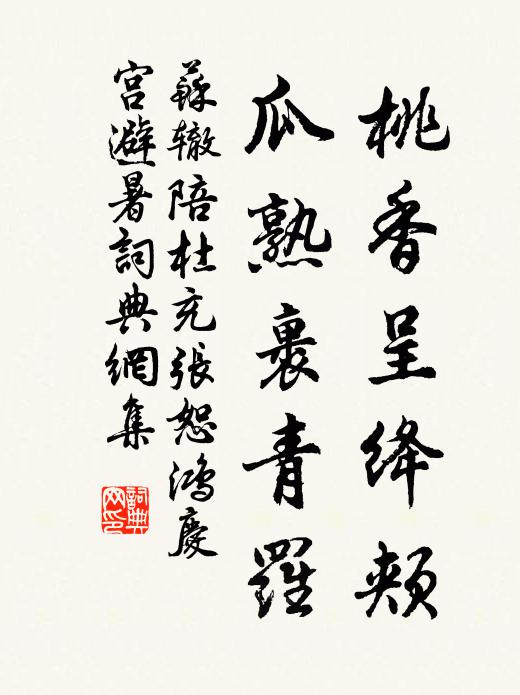 桃香呈绛颊
瓜熟裹青羅
蘇辙陪杜充張恕鴻慶
宫避暑詞典網集
詞典网印